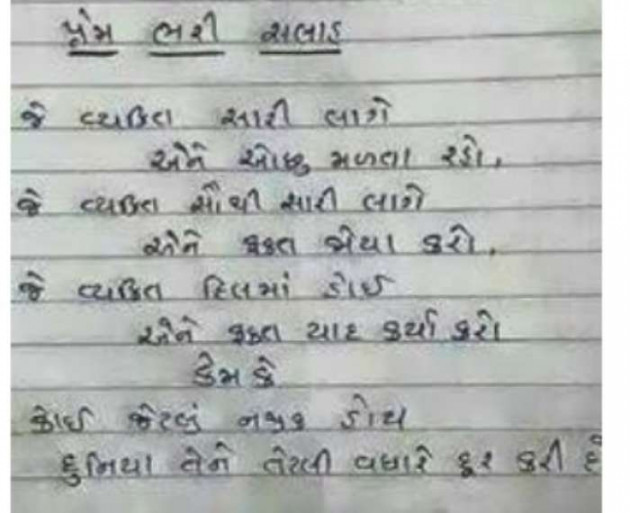 પ્રેમ ભરી સલાહ
જે વ્યકિત સારી લાગે
એને ઓછુ મળતા રહો.
જે વ્યકિત સૌથી સારી લાગે
એને ફકત જોયા કરો.
જે વ્યકિત દિલમાં હોઈ
એને ફકત યાદ કર્યા કરો
કેમ કે
કોઈ જેટલું નજીક હોય
દુનિયા તેને તેટલી વધારે દૂર કરી દે